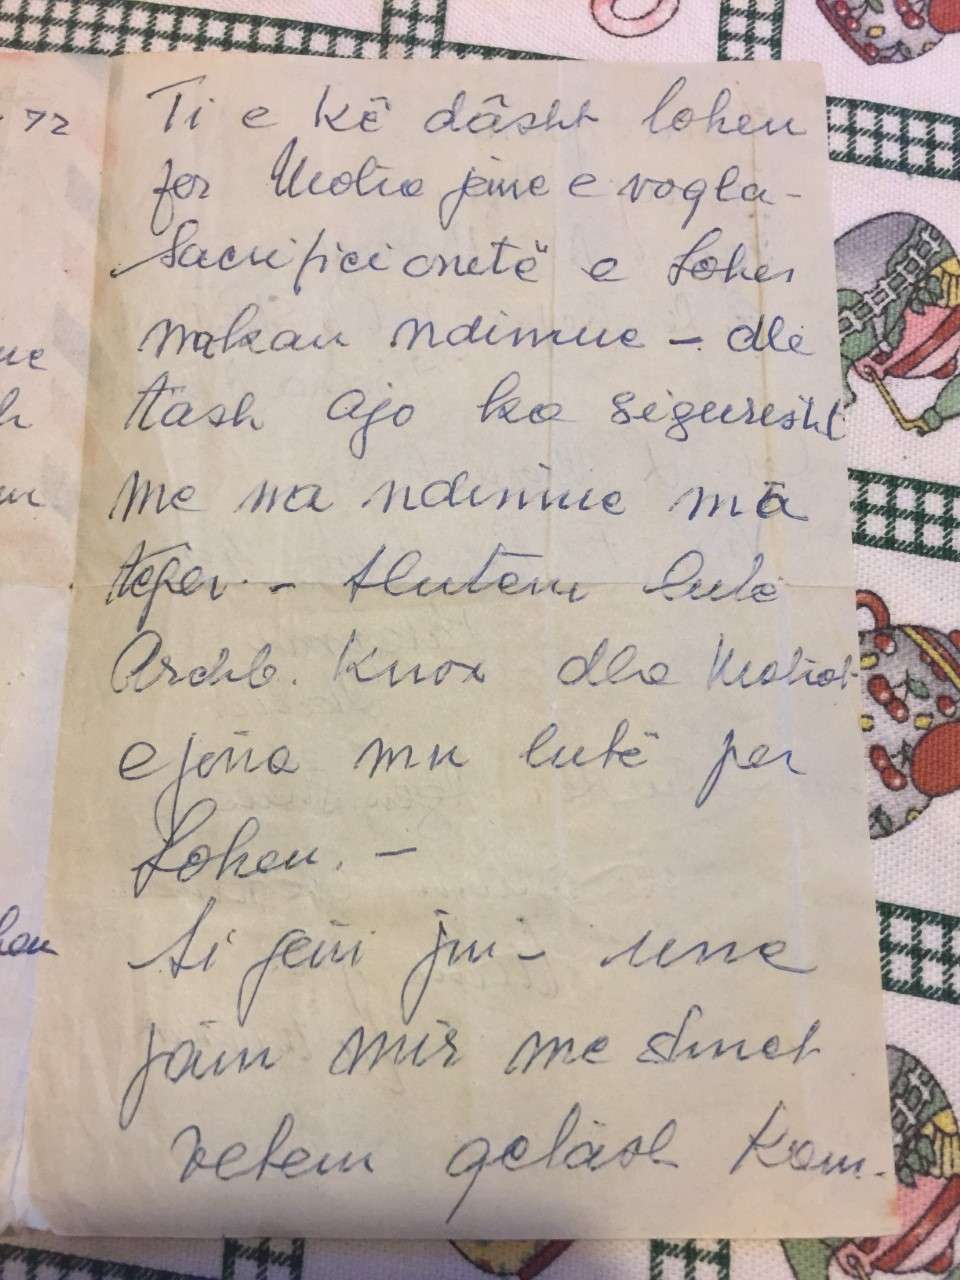 72
Ti e kê dâsht Lohen
for Motra jone e vogla-
Sacrificionetë e Lohes
makan ndimue - dhe
tash Ajo ka sigurisht
me ma ndimue mâ
teper. - tlutem lutë
Archb. Knox dhe Motrat
e jona mu lutë per
Lohen. -
Si jeni ju - une
jam mir me shnet
vetem gelâsh kam.